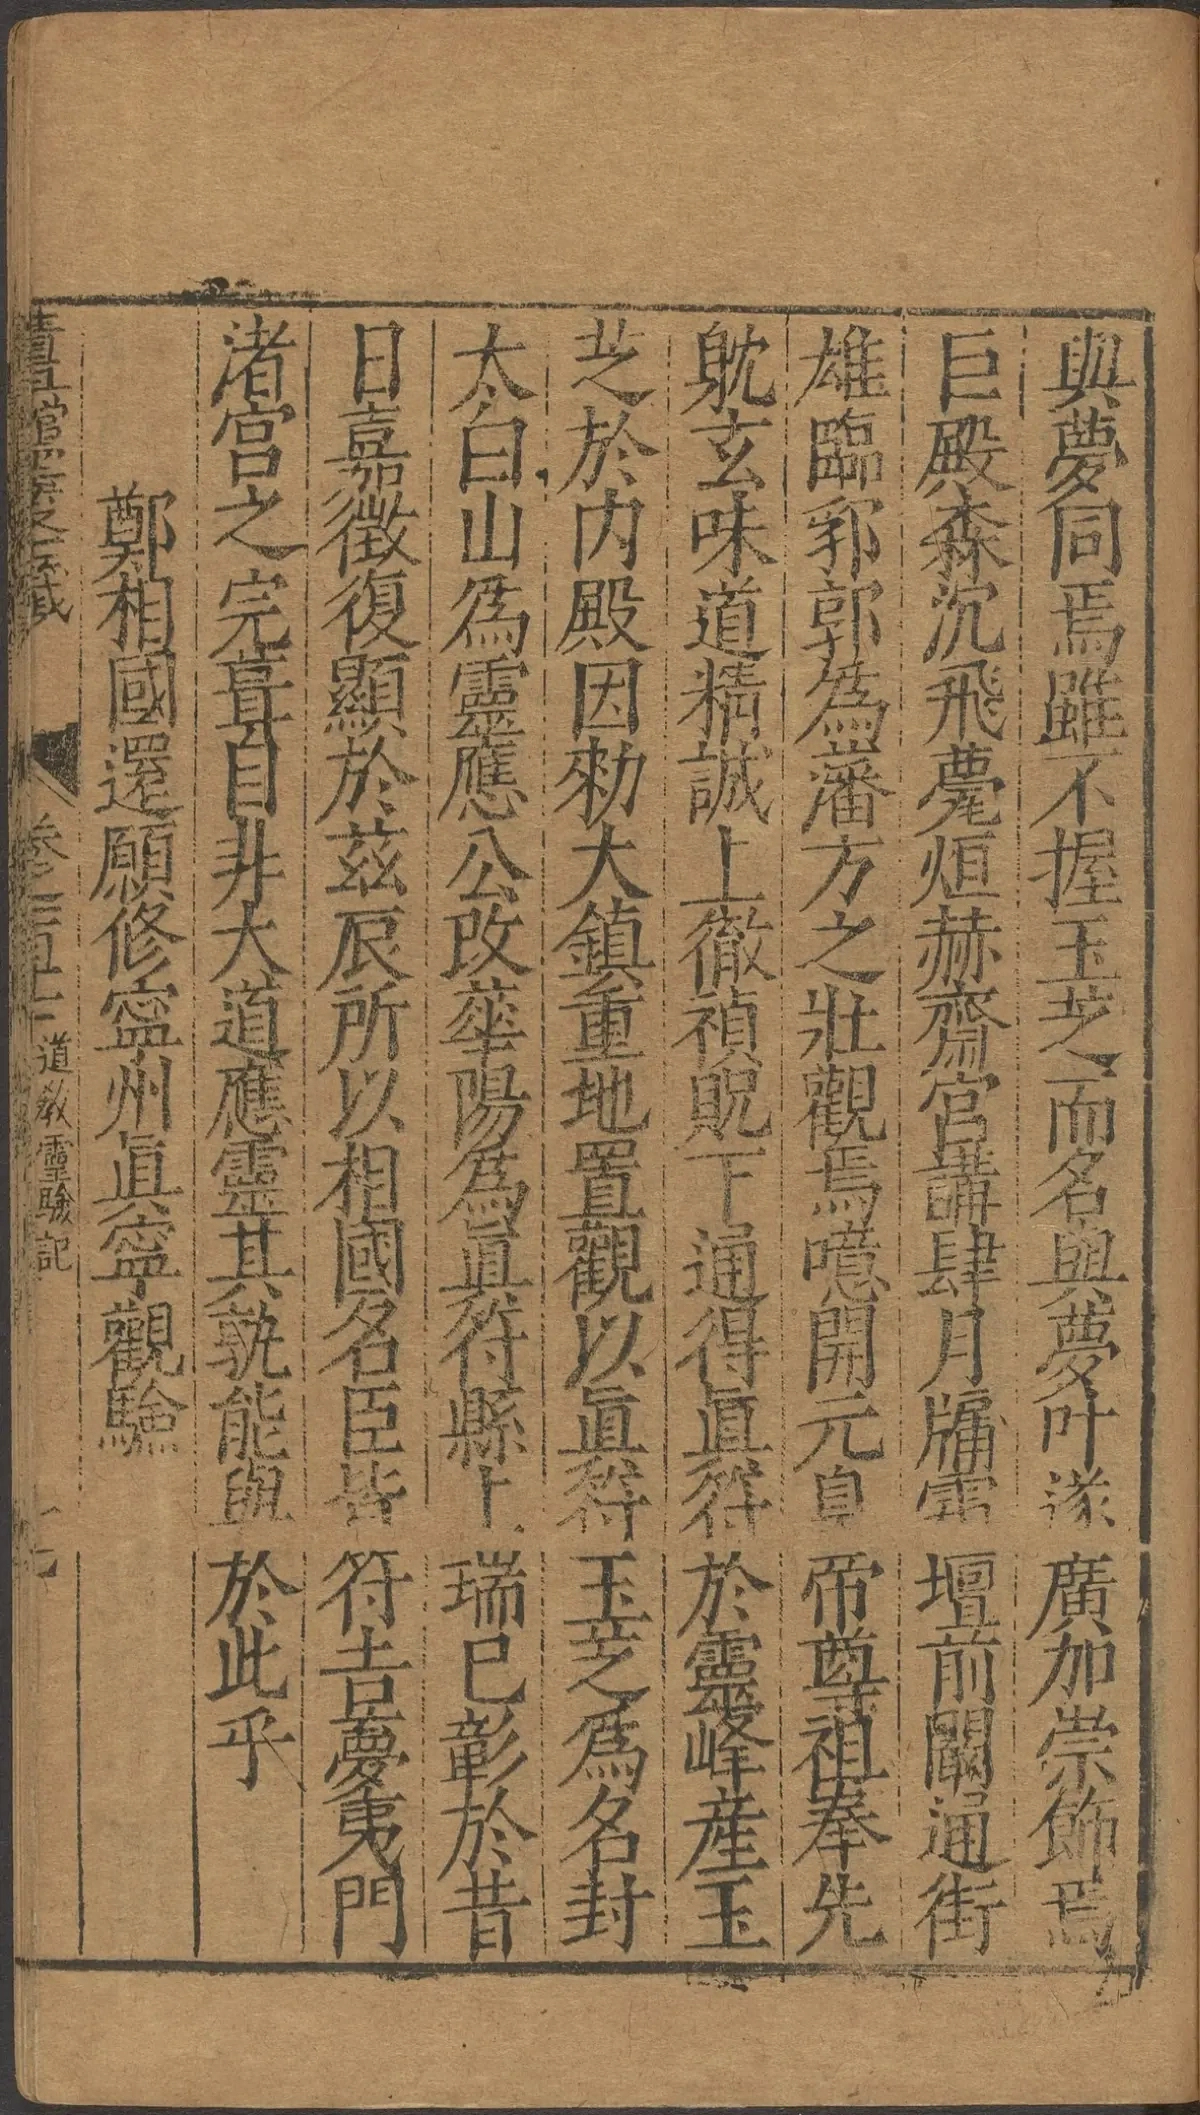 與夢同焉雖不握玉芝而名與夢叶遂廣加崇飾焉
巨殿森沉飛甍烜赫齋官講肆月牖雲壇前闞通街
雄臨郛郭爲藩方之壯觀焉噫開元皇帝尊祖奉先
躭玄味道精誠上徹禎貺下通得眞符於靈峰産玉
芝於内殿因勑大鎮重地置觀以眞符玉芝爲名封
太白山爲靈應公改華陽爲眞符縣上瑞巳彰於昔
日嘉徵復顯於茲辰所以相國名臣皆符吉夢夷門
渚宫之完葺自非大道應靈其孰能與於此乎
鄭相國還願修寧州眞寧觀驗
道教靈驗記